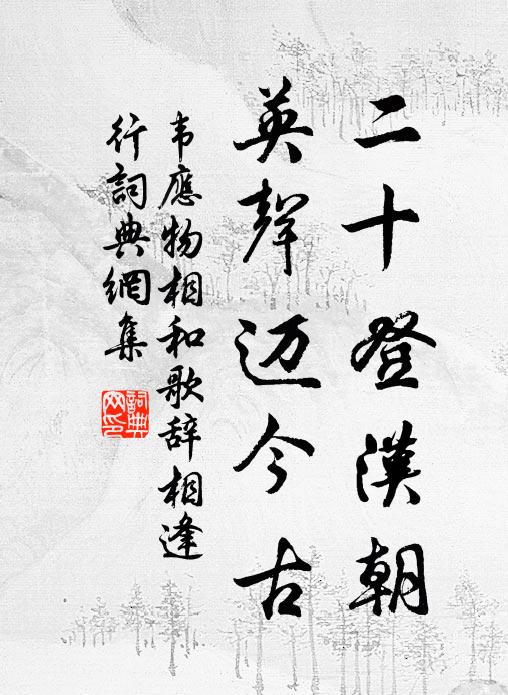 二十登漢朝
英聲迈今古
韦應物相和歌辞相逢
行詞典網集
詞典
网印